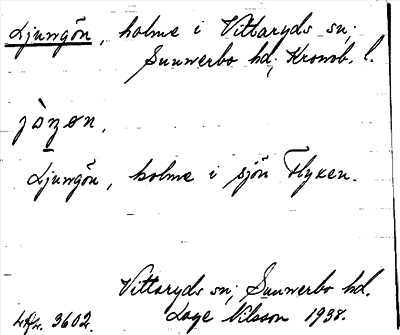 Ljungön, holme i Vittaryds sn;
Sunnerbo hd; Kronob. l.
jòŋøn.
Ljungön, holme i sjön Flyken.
Vittaryds sn; Sunnerbo hd.
3602. Lage Nilsson 1938.